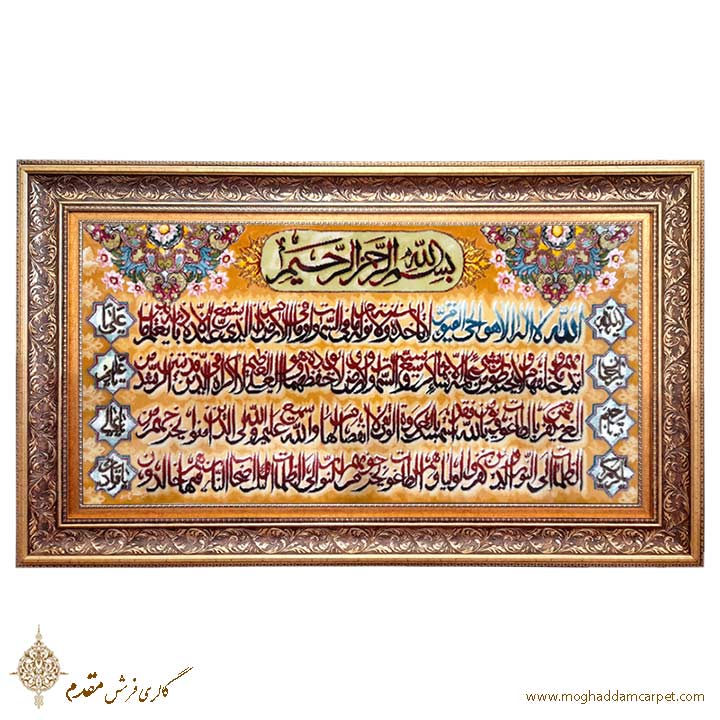 بسم الله الرحمن الرحیم
الله لا اله الا هو الحی القیوم لا تاخذه سنة و لا نوم له ما فی السموات و ما فی الارض من ذا الذی یشفع عنده الا باذنه یعلم ما
بین ایدیهم و ما خلفهم و لا یحیطون بشیء من علمه الا بما شاء وسع کرسیه السموات و الارض و لا یؤده حفظهما و هو العلی العظیم لا اکراه فی الدین قد تبین الرشد من
الغی فمن یکفر بالطاغوت و یؤمن بالله فقد استمسک بالعروة الوثقی لا انفصام لها و الله سمیع علیم الله ولی الذین آمنوا یخرجهم من
الظلمات الی النور و الذین کفروا اولیاؤهم الطاغوت یخرجونهم من النور الی الظلمات اولئک اصحاب النار هم فیها خالدون
گالری فرش مقدم
www.moghaddamcarpet.com